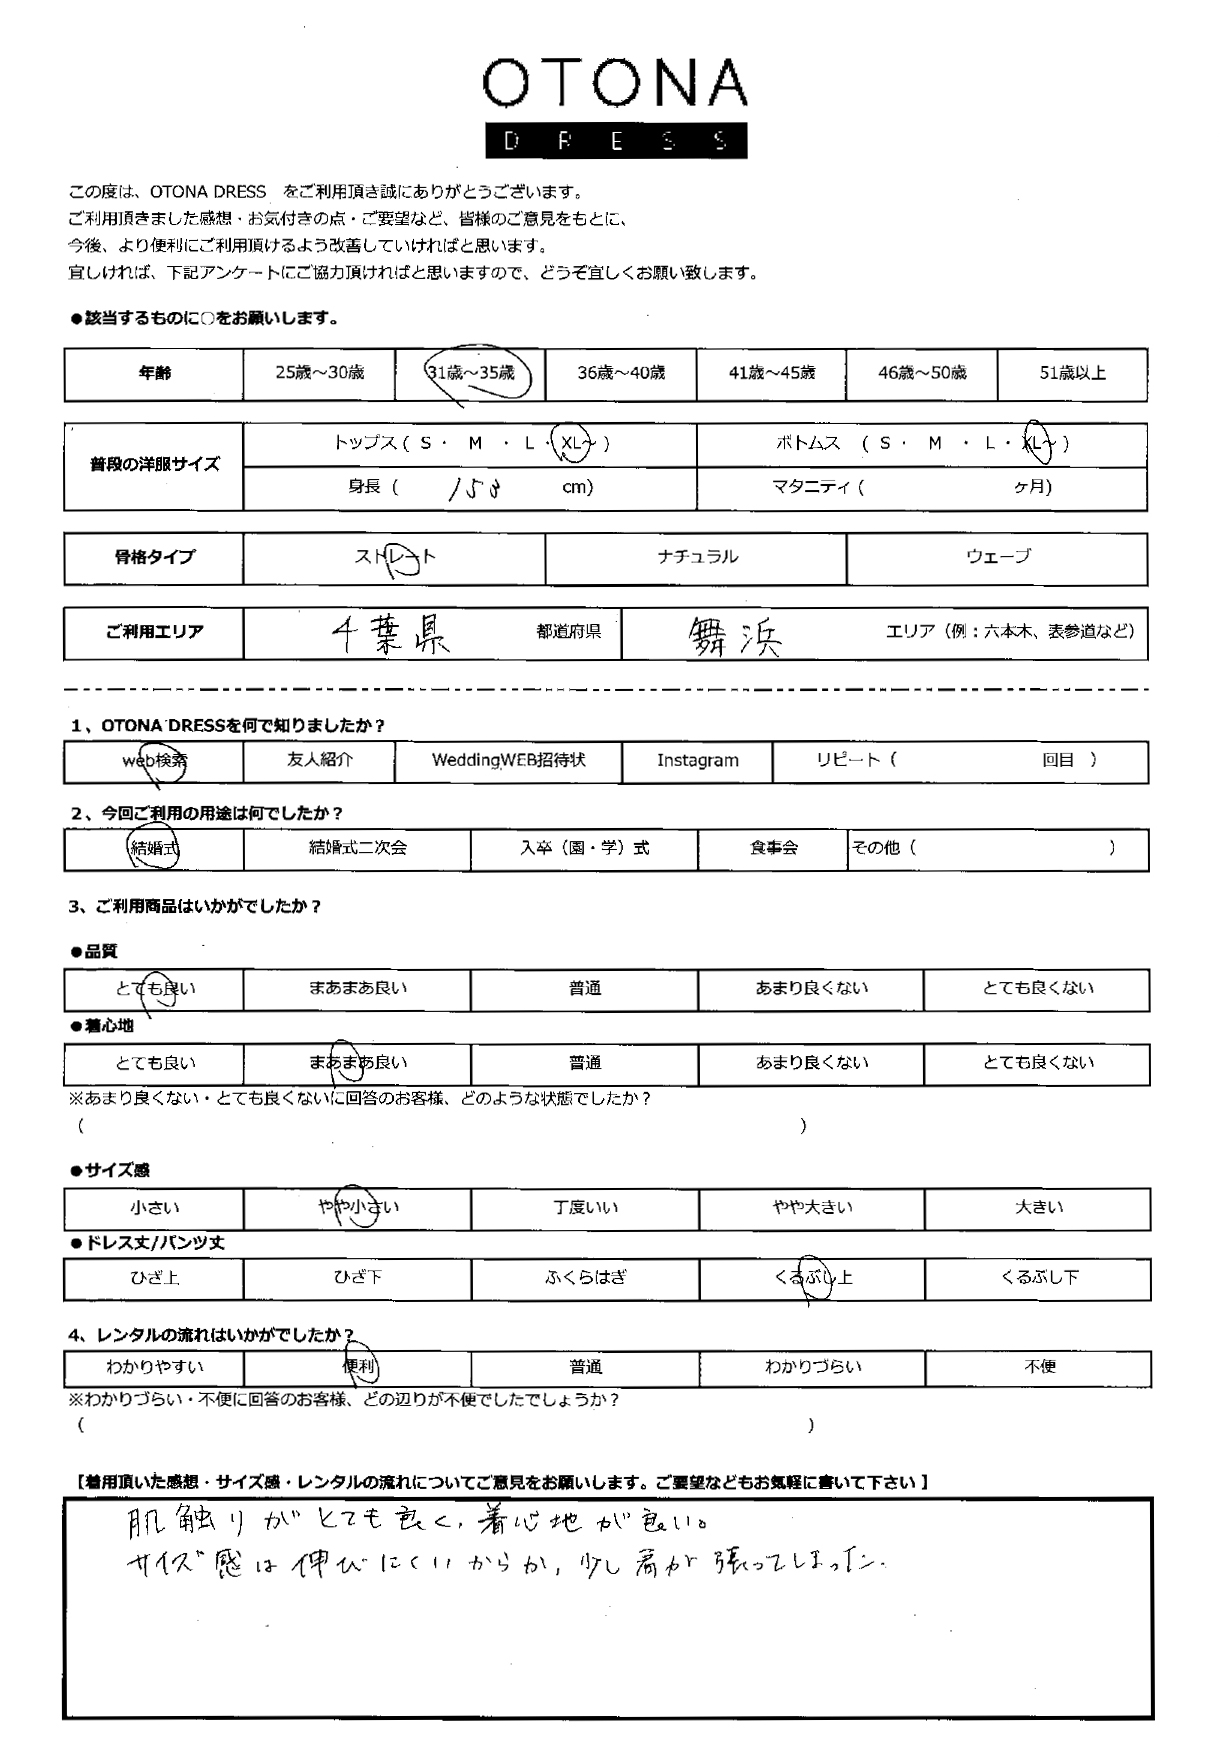 OTONA
DRESS
この度は、OTONA DRESS　をご利用頂き誠にありがとうございます。
ご利用頂きました感想・お気付きの点・ご要望など、皆様のご意見をもとに、
今後、より便利にご利用頂けるよう改善していければと思います。
宜しければ、下記アンケートにご協力頂ければと思いますので、どうぞ宜しくお願い致します。
●該当するものに○をお願いします。
年齢 25歳～30歳 31歳～35歳 36歳～40歳 41歳～45歳 46歳～50歳 51歳以上
普段の洋服サイズ トップス ( S ・ M ・ L ・ XL～ ) ボトムス ( S ・ M ・ L ・ XL～ )
身長 ( 158 cm) マタニティ ( ヶ月)
骨格タイプ ストレート ナチュラル ウェーブ
ご利用エリア 千葉県 都道府県 舞浜 エリア（例：六本木、表参道など）
1、OTONA DRESSを何で知りましたか？
web検索 友人紹介 WeddingWEB招待状 Instagram リピート（ 回目 ）
2、今回ご利用の用途は何でしたか？
結婚式 結婚式二次会 入卒（園・学）式 食事会 その他（ ）
3、ご利用商品はいかがでしたか？
●品質
とても良い まあまあ良い 普通 あまり良くない とても良くない
●着心地
とても良い まあまあ良い 普通 あまり良くない とても良くない
※あまり良くない・とても良くないに回答のお客様、どのような状態でしたか？
( )
●サイズ感
小さい やや小さい 丁度いい やや大きい 大きい
●ドレス丈/パンツ丈
ひざ上 ひざ下 ふくらはぎ くるぶし上 くるぶし下
4、レンタルの流れはいかがでしたか？
わかりやすい 便利 普通 わかりづらい 不便
※わかりづらい・不便に回答のお客様、どの辺りが不便でしたでしょうか？
( )
【着用頂いた感想・サイズ感・レンタルの流れについてご意見をお願いします。ご要望などもお気軽に書いて下さい】
肌触りがとても良く、着心地が良い。
サイズ感は伸びにくいからか、少し肩が張ってしまった。